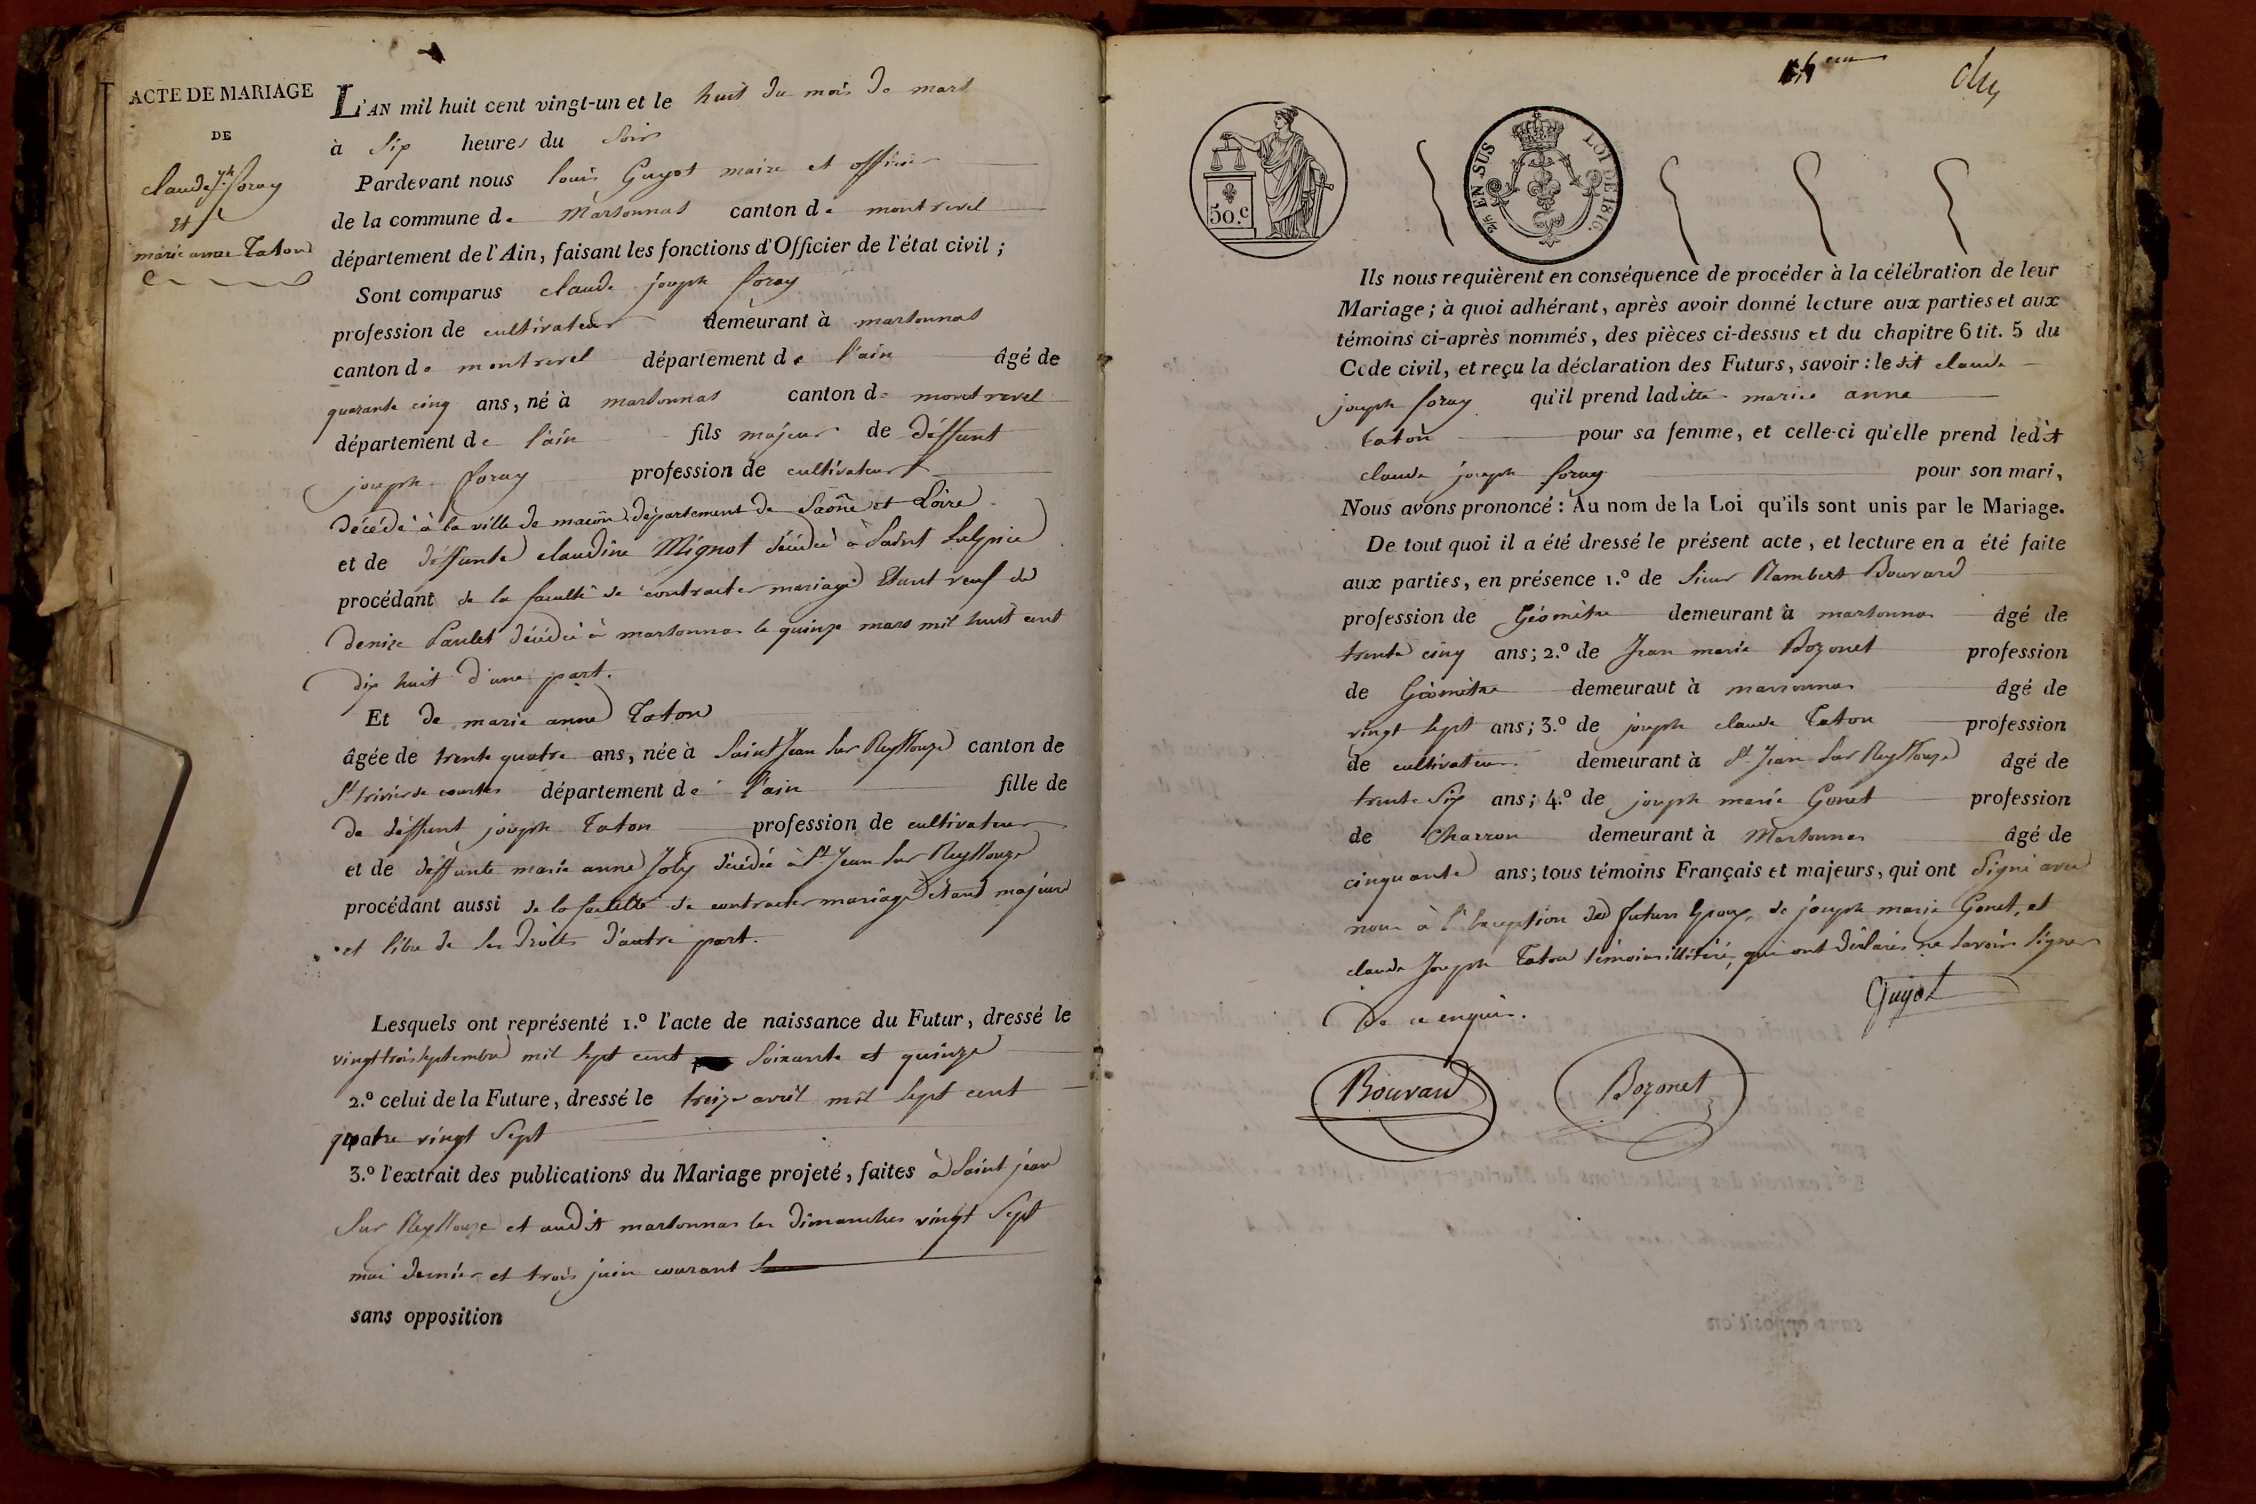 ACTE DE MARIAGE
DE
claude jph foray
Et
marie anne Taton
L'AN mil huit cent vingt-un et le huit du mois de mars
à Six heures du Soir
Pardevant nous louis Guyot maire et officier
de la commune de Marsonnas canton de montrevel
département de l'Ain, faisant les fonctions d'Officier de l'état civil ;
Sont comparus claude joseph foray
profession de cultivateur demeurant à marsonnas
canton de montrevel département de l'ain âgé de
quarante cinq ans, né à marsonnas canton de montrevel
département de l'ain fils majeur de déffunt
joseph foray profession de cultivateur
décédé à la ville de macôn département de Saône et Loire
et de déffunte claudine Mignot décédée à Saint Sulpice
procédant de la faculté de contracter mariage Etant veuf de
denise Paulet décédée à marsonnas le quinze mars mil huit cent
dix huit d'une part.
Et de marie anne Taton
âgée de trente quatre ans, née à Saint Jean Sur Reyssouze canton de
St trivier de courtes département de l'ain fille de
de déffunt joseph Taton profession de cultivateur
et de déffunte marie anne Joly décédée à St Jean Sur Reyssouze
procédant aussi de la faculté de contracter mariage étant majeure
et libre de ses droits d'autre part.
Lesquels ont représenté 1.º l'acte de naissance du Futur, dressé le
vingt trois Septembre mil Sept cent Soixante et quinze
2.º celui de la Future, dressé le treize avril mil Sept cent
quatre vingt Sept
3.º l'extrait des publications du Mariage projeté, faites à Saint jean
Sur Reyssouze et audit marsonnas les Dimanches vingt Sept
mai dernier et trois juin courant
sans opposition
50.c
2/5 EN SUS LOI DE 1816.
Ils nous requièrent en conséquence de procéder à la célébration de leur
Mariage ; à quoi adhérant, après avoir donné lecture aux parties et aux
témoins ci-après nommés, des pièces ci-dessus et du chapitre 6 tit. 5 du
Code civil, et reçu la déclaration des Futurs, savoir : le dit claude
joseph foray qu'il prend laditte marie anne
taton pour sa femme, et celle-ci qu'elle prend ledit
claude joseph foray pour son mari,
Nous avons prononcé : Au nom de la Loi qu'ils sont unis par le Mariage.
De tout quoi il a été dressé le présent acte, et lecture en a été faite
aux parties, en présence 1.º de Sieur Rambert Bouvard
profession de Géomètre demeurant à marsonnas âgé de
trente cinq ans ; 2.º de Jean marie Bozonet profession
de Géomètre demeuraut à marsonnas âgé de
vingt Sept ans ; 3.º de joseph claude Taton profession
de cultivateur demeurant à St Jean Sur Reyssouze âgé de
trente Six ans ; 4.º de joseph marie Gonet profession
de Charron demeurant à Marsonnas âgé de
cinquante ans ; tous témoins Français et majeurs, qui ont Signé avec
nous à l'Exception des futurs Epoux, de joseph marie Gonet, et
claude Joseph Taton témoins illitéré, qui ont déclarés ne Savoir Signer
De ce enquis.
Guyot
Bouvard Bozonet